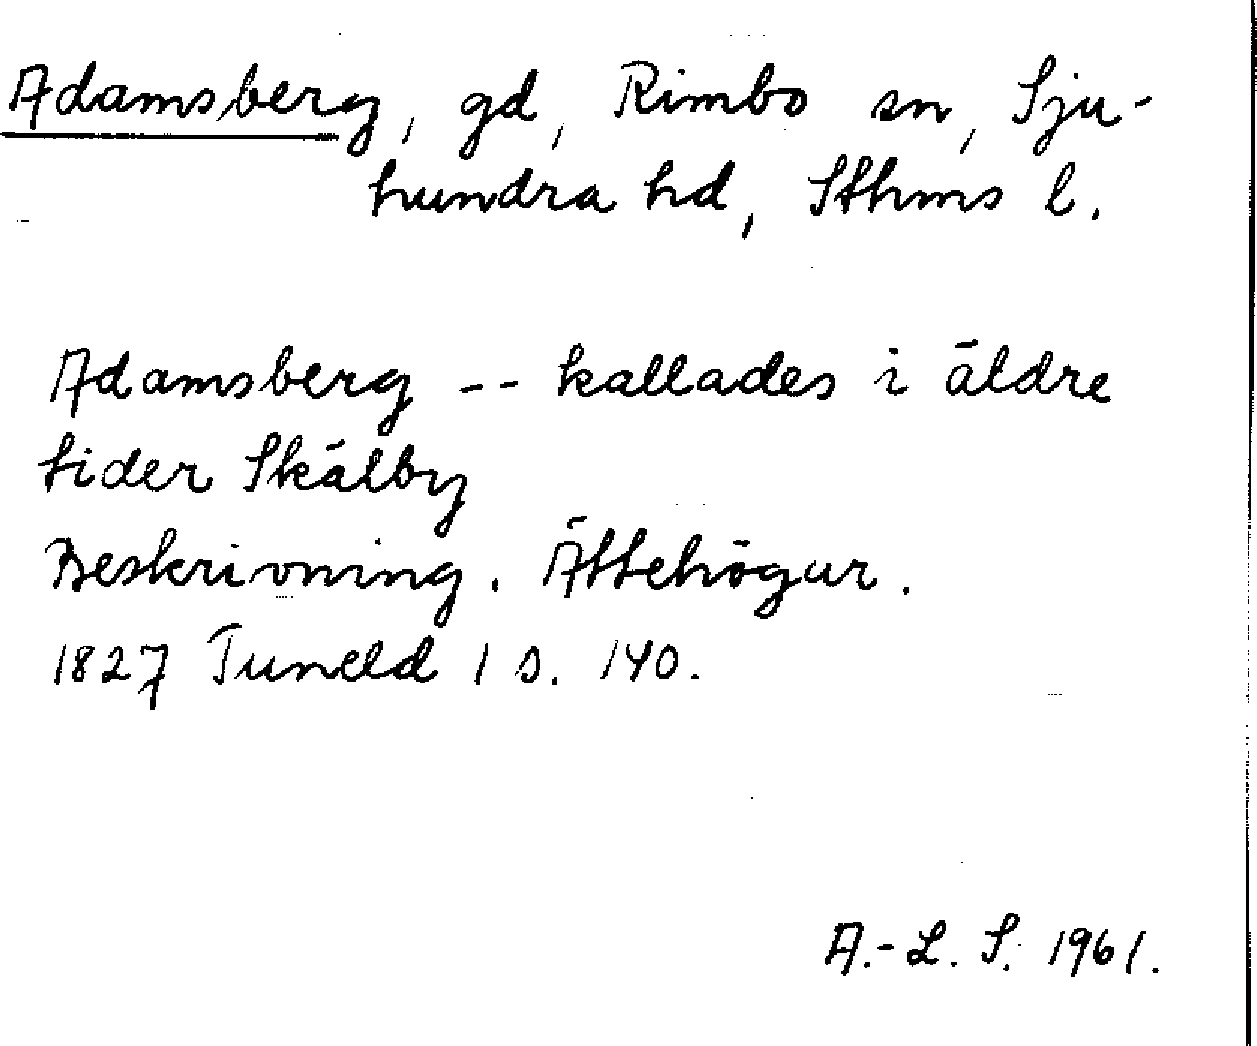 Adamsberg, gd, Rimbo sn, Sju-
hundra hd, Sthms l.
Adamsberg -- kallades i äldre
tider Skälby
Beskrivning. Ättehögar.
1827 Tuneld 1 s. 140.
A.-L. S. 1961.